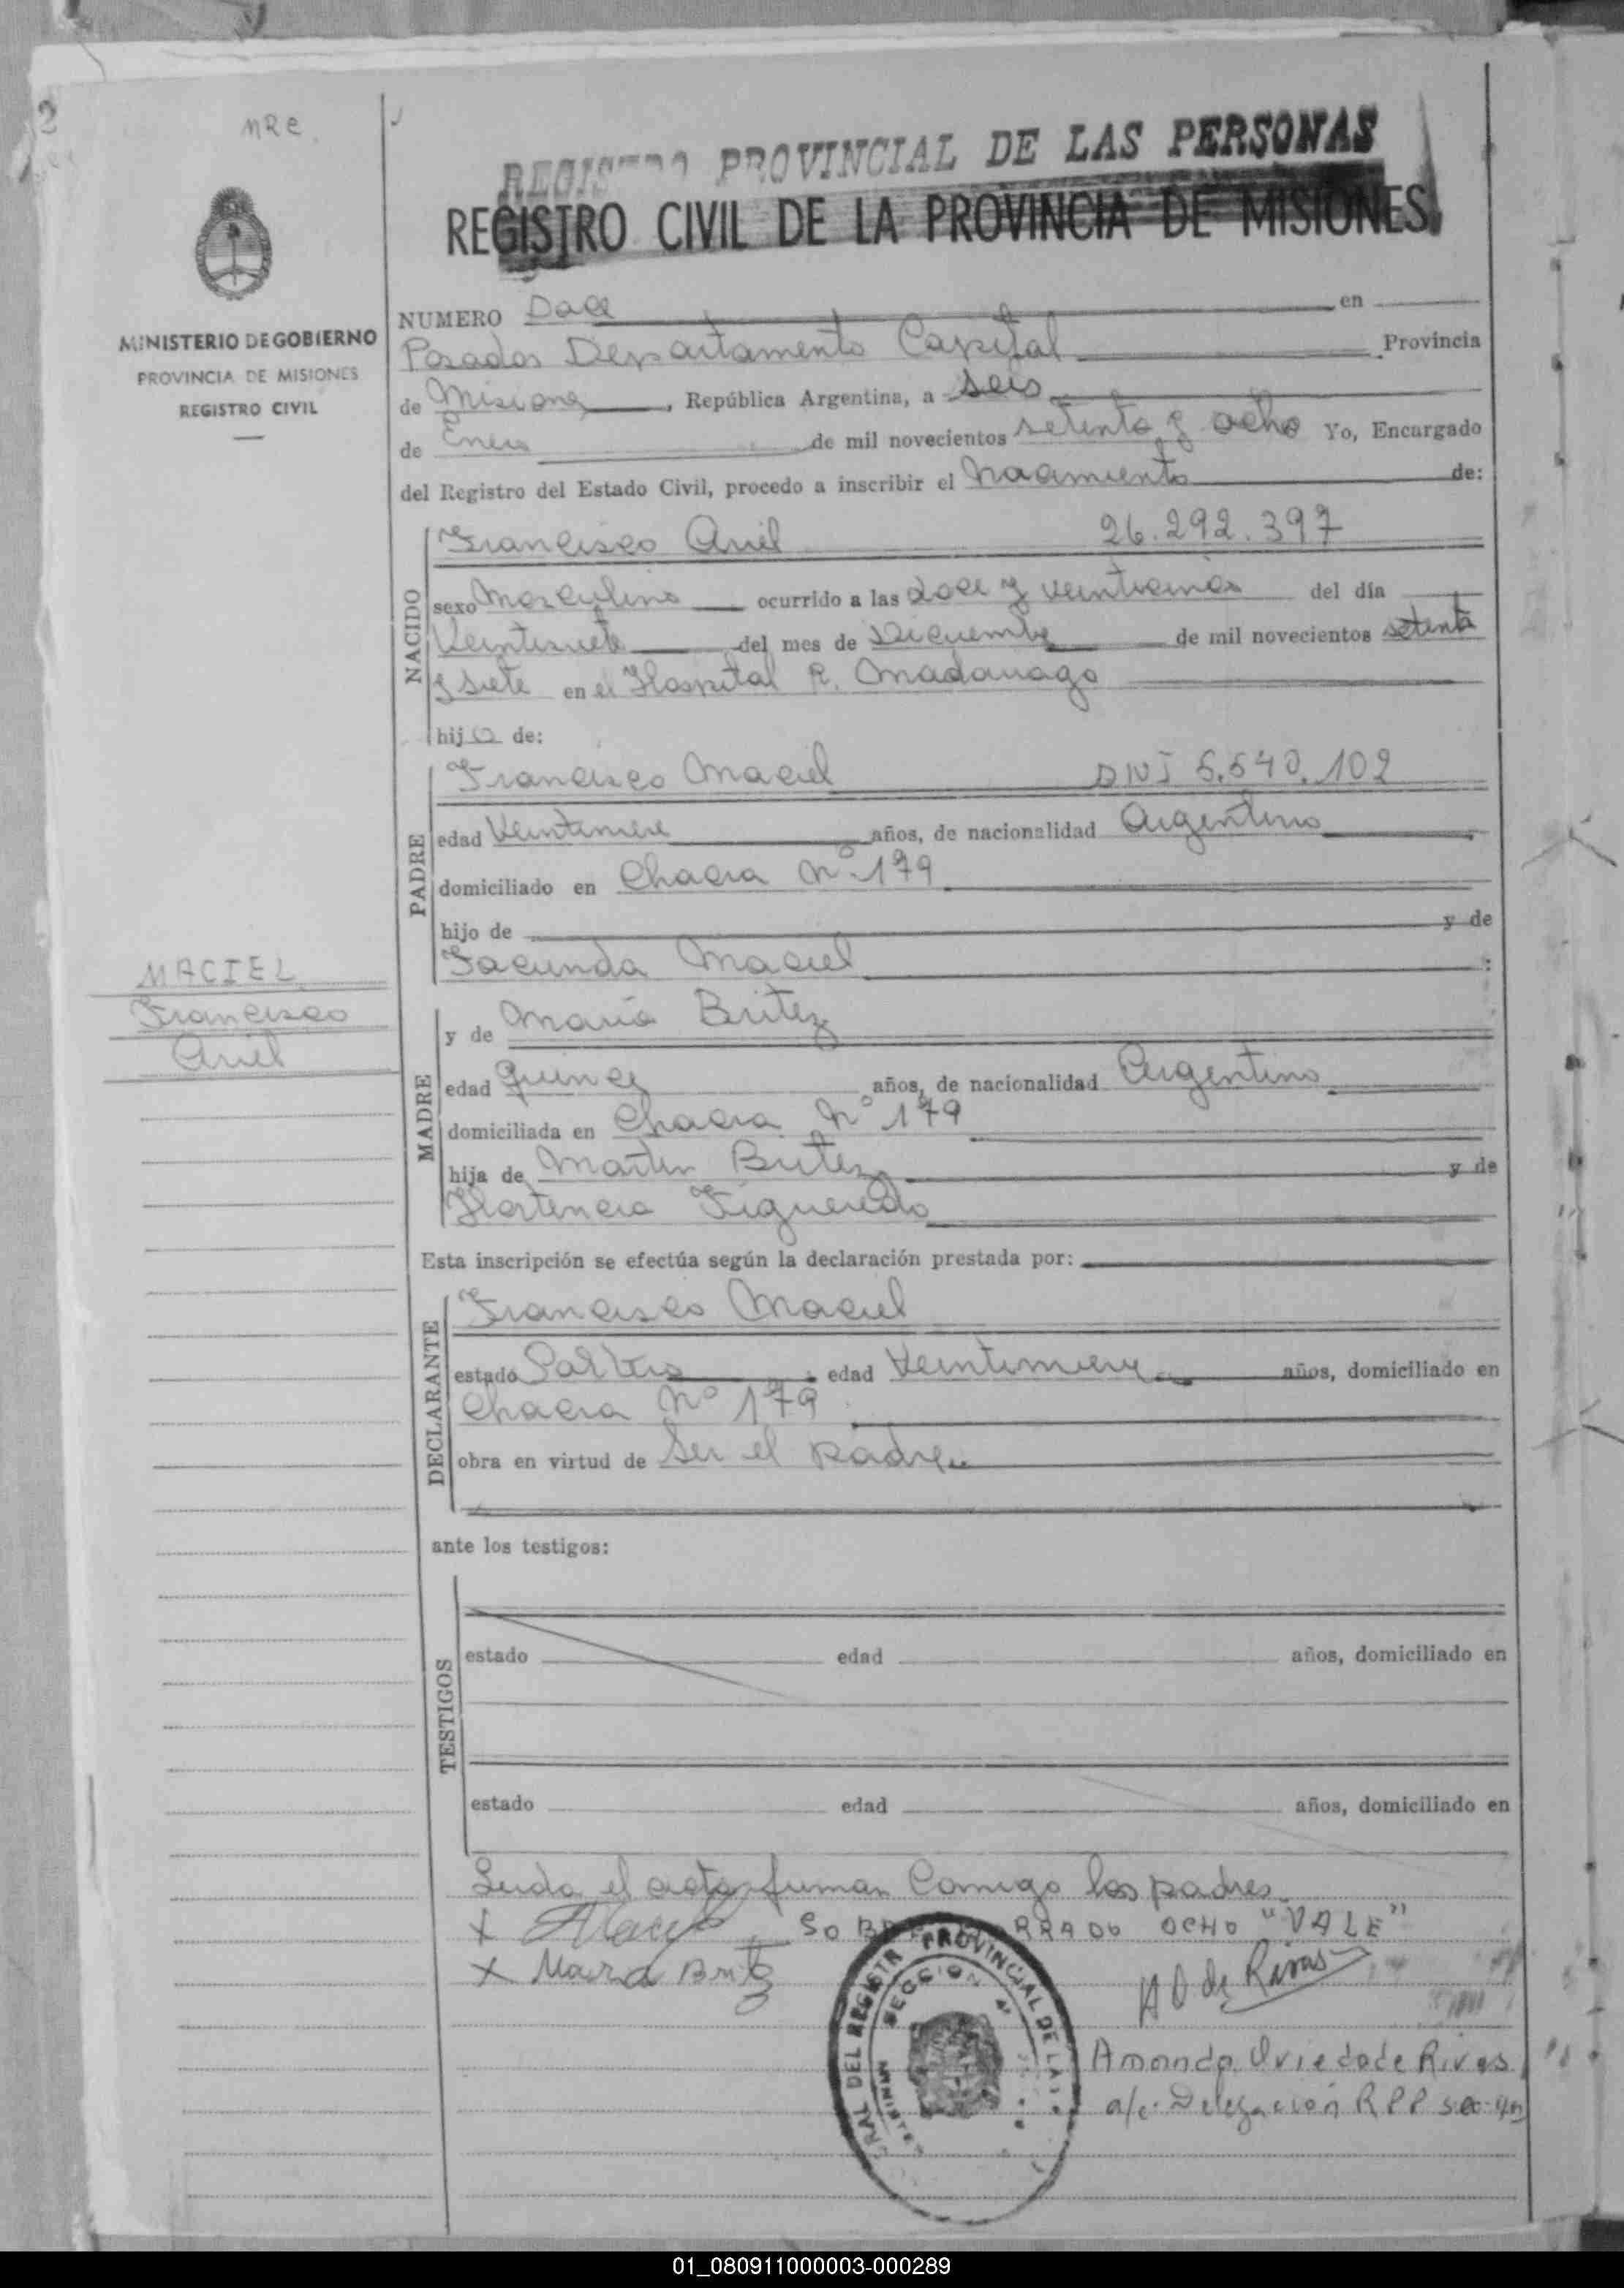 2
MRe
REGISTRO PROVINCIAL DE LAS PERSONAS
REGISTRO CIVIL DE LA PROVINCIA DE MISIONES
MINISTERIO DE GOBIERNO
PROVINCIA DE MISIONES
REGISTRO CIVIL
NUMERO Doce en
Posadas Departamento Capital Provincia
de Misiones, República Argentina, a seis
de Enero de mil novecientos setenta y ocho Yo, Encargado
del Registro del Estado Civil, procedo a inscribir el Nacimiento de:
NACIDO
Francisco Ariel 26.292.397
sexo Masculino ocurrido a las doce y veinticinco del día
Veintisiete del mes de Diciembre de mil novecientos setenta
y siete en el Hospital R. Madariaga
hijo de:
PADRE
Francisco Maciel DNI 5.540.102
edad Veintinueve años, de nacionalidad Argentino
domiciliado en Chacra Nº 179
hijo de y de
Facunda Maciel
MACIEL
Francisco
Ariel
MADRE
y de María Britez
edad quince años, de nacionalidad Argentina
domiciliada en Chacra Nº 179
hija de Martin Britez y de
Hortencia Figueredo
Esta inscripción se efectúa según la declaración prestada por:
DECLARANTE
Francisco Maciel
estado Soltero edad Veintinueve años, domiciliado en
Chacra Nº 179
obra en virtud de Ser el padre
ante los testigos:
TESTIGOS
estado edad años, domiciliado en
estado edad años, domiciliado en
Leida el acta firman Conmigo los padres
x Maciel SOBRE BORRADO OCHO "VALE"
x Maria Britez
AO de Rivas
Amanda Oviedo de Rivas
a/c. Delegación RPP sec 4ta
DEL REGISTR PROVINCIAL DE LAS
SECCION 4
01_080911000003-000289